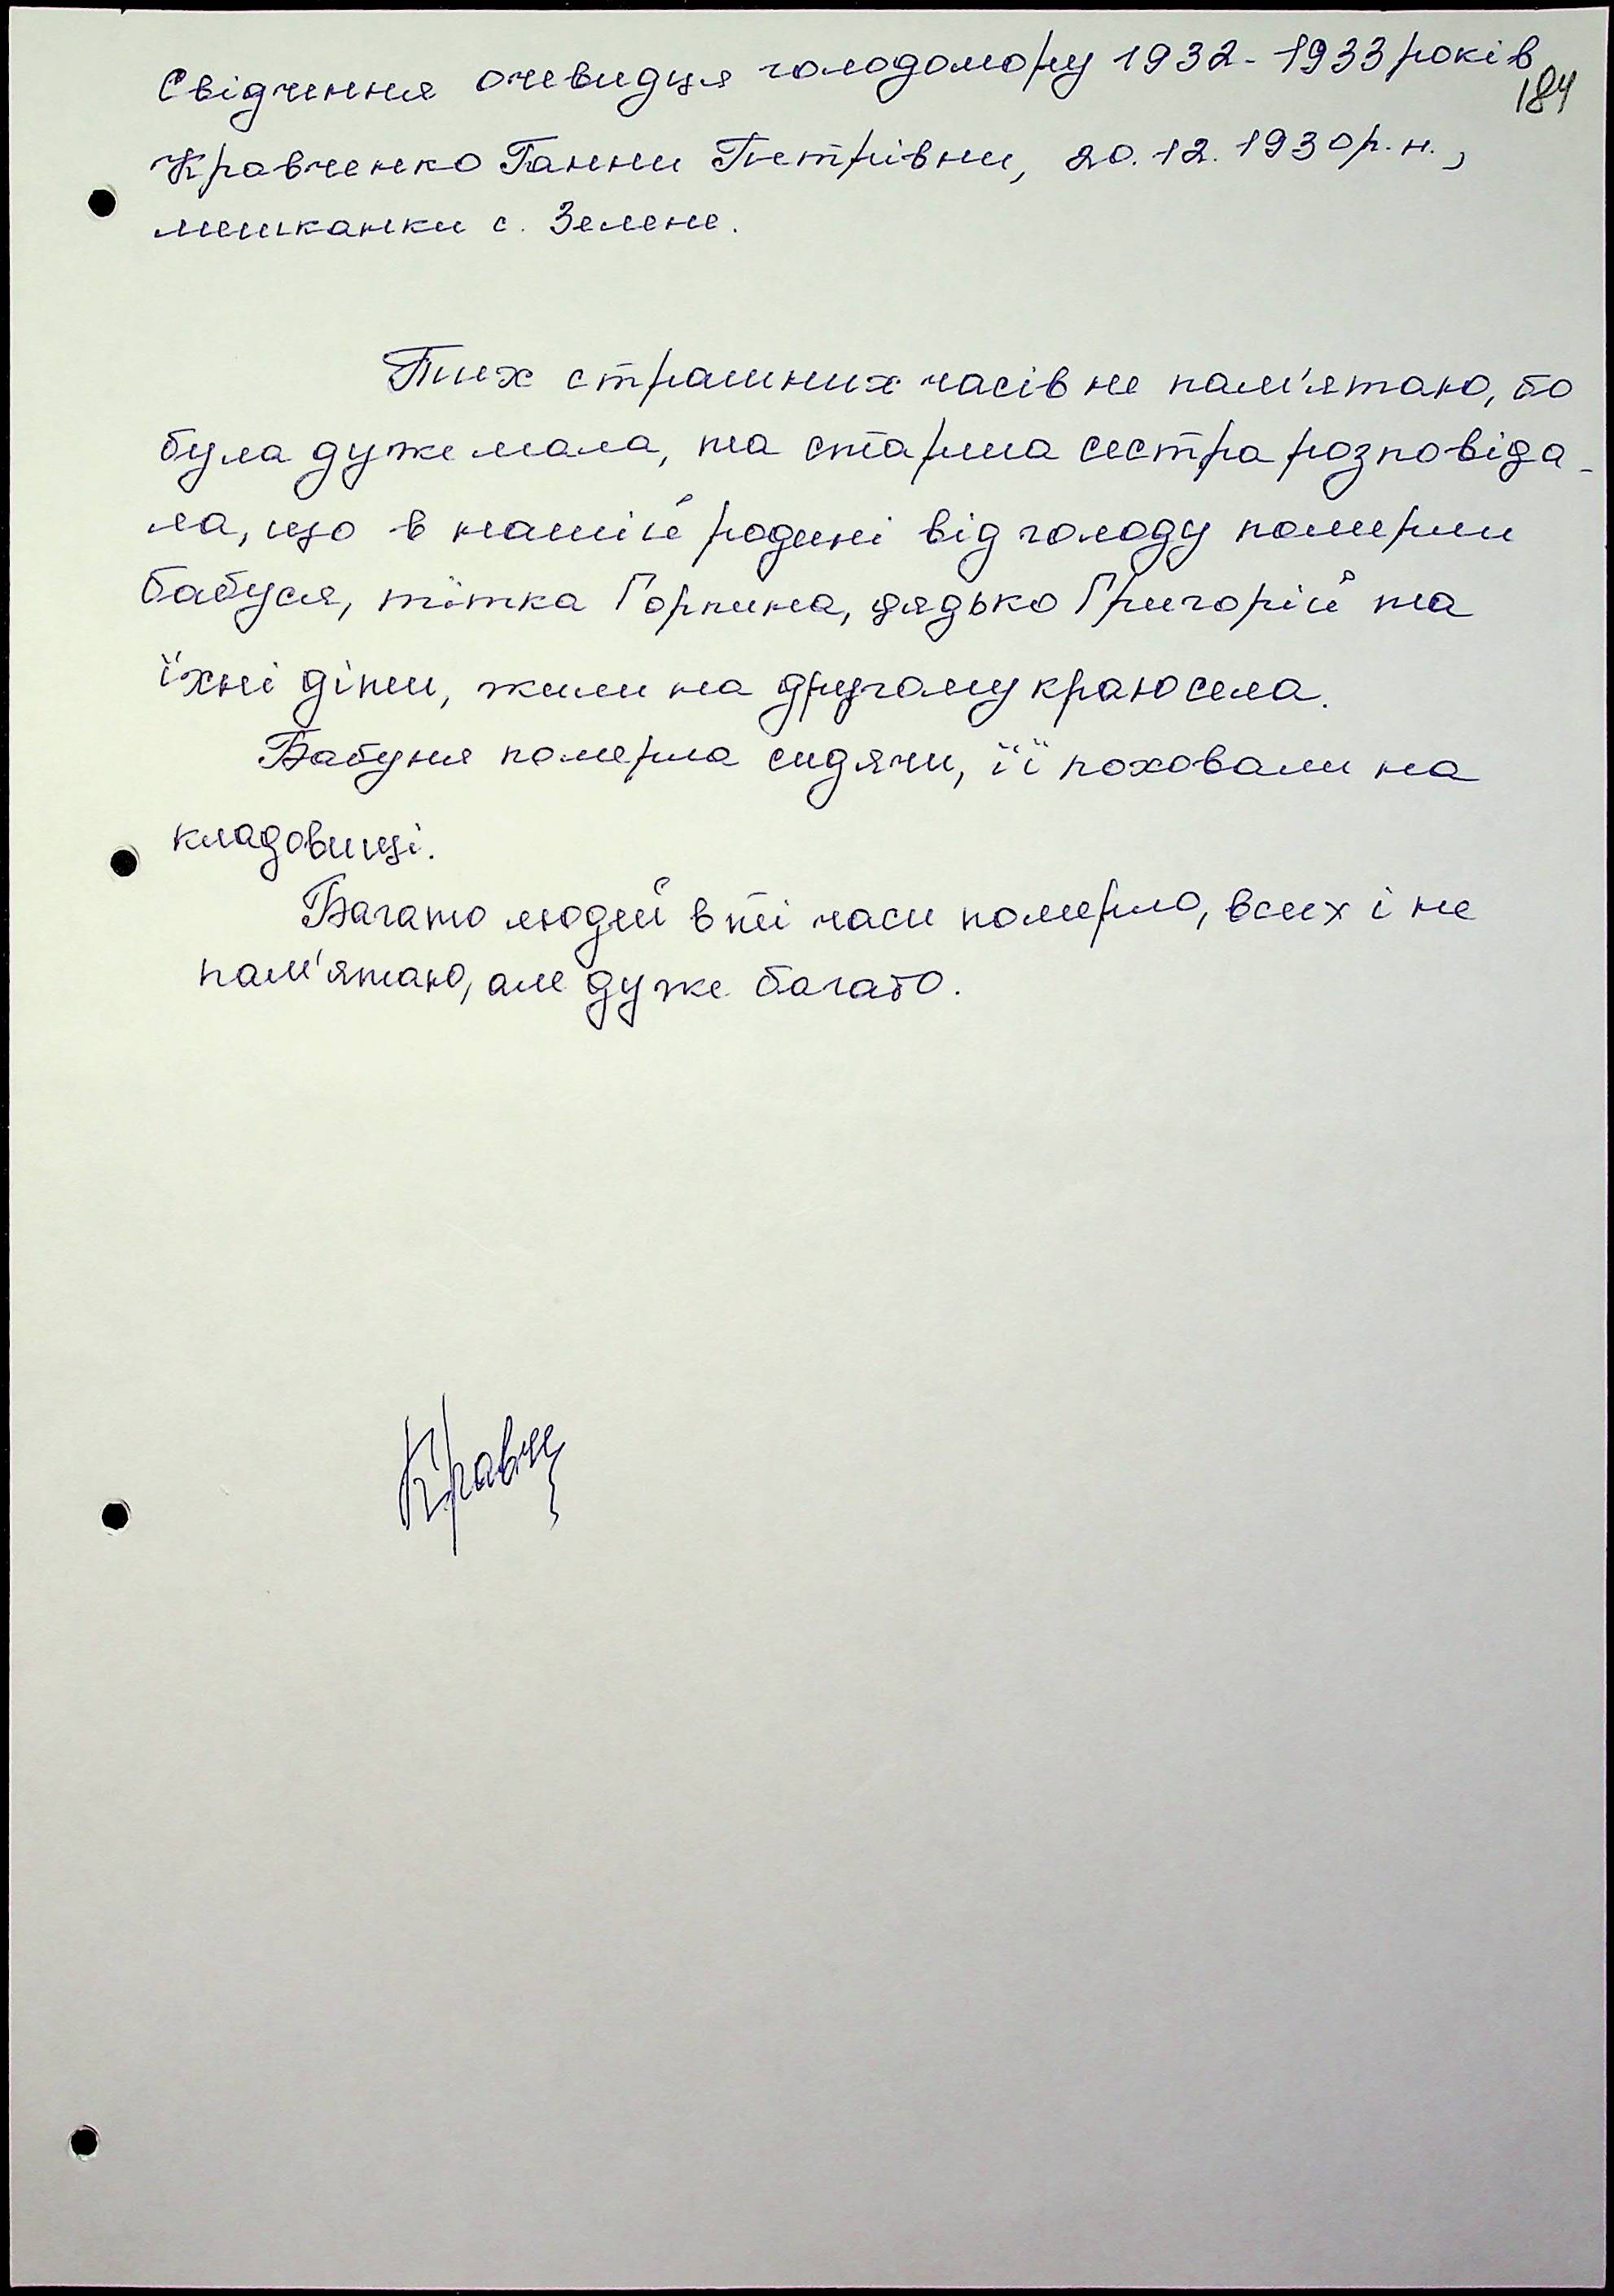 Свідчення очевидця голодомору 1932-1933 років
184
Кравченко Ганни Петрівни, 20.12.1930 р.н.,
мешканки с. Зелене.
Тих страшних часів не пам'ятаю, бо
була дуже мала, та старша сестра розповіда-
ла, що в нашій родині від голоду померли
бабуся, тітка Горпина, дядько Григорій та
їхні діти, жили на другому краю села.
Бабуня померла сидячи, її поховали на
кладовищі.
Багато людей в ті часи померло, всих і не
пам'ятаю, але дуже багато.
Кравч